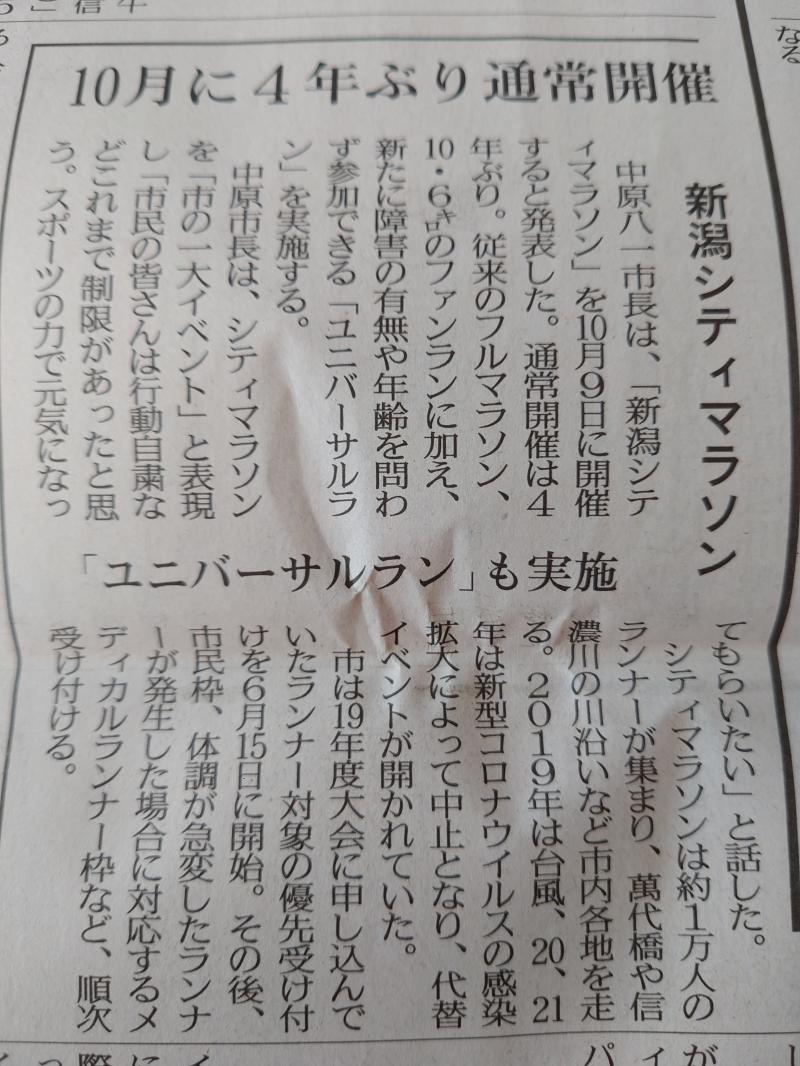 10月に4年ぶり通常開催
新潟シティマラソン
「ユニバーサルラン」も実施
中原八一市長は、「新潟シテ
ィマラソン」を10月9日に開催
すると発表した。通常開催は4
年ぶり。従来のフルマラソン、
10・6㌔のファンランに加え、
新たに障害の有無や年齢を問わ
ず参加できる「ユニバーサルラ
ン」を実施する。
中原市長は、シティマラソン
を「市の一大イベント」と表現
し「市民の皆さんは行動自粛な
どこれまで制限があったと思
う。スポーツの力で元気になっ
てもらいたい」と話した。
シティマラソンは約1万人の
ランナーが集まり、萬代橋や信
濃川の川沿いなど市内各地を走
る。2019年は台風、20、21
年は新型コロナウイルスの感染
拡大によって中止となり、代替
イベントが開かれていた。
市は19年度大会に申し込んで
いたランナー対象の優先受け付
けを6月15日に開始。その後、
市民枠、体調が急変したランナ
ーが発生した場合に対応するメ
ディカルランナー枠など、順次
受け付ける。
なる